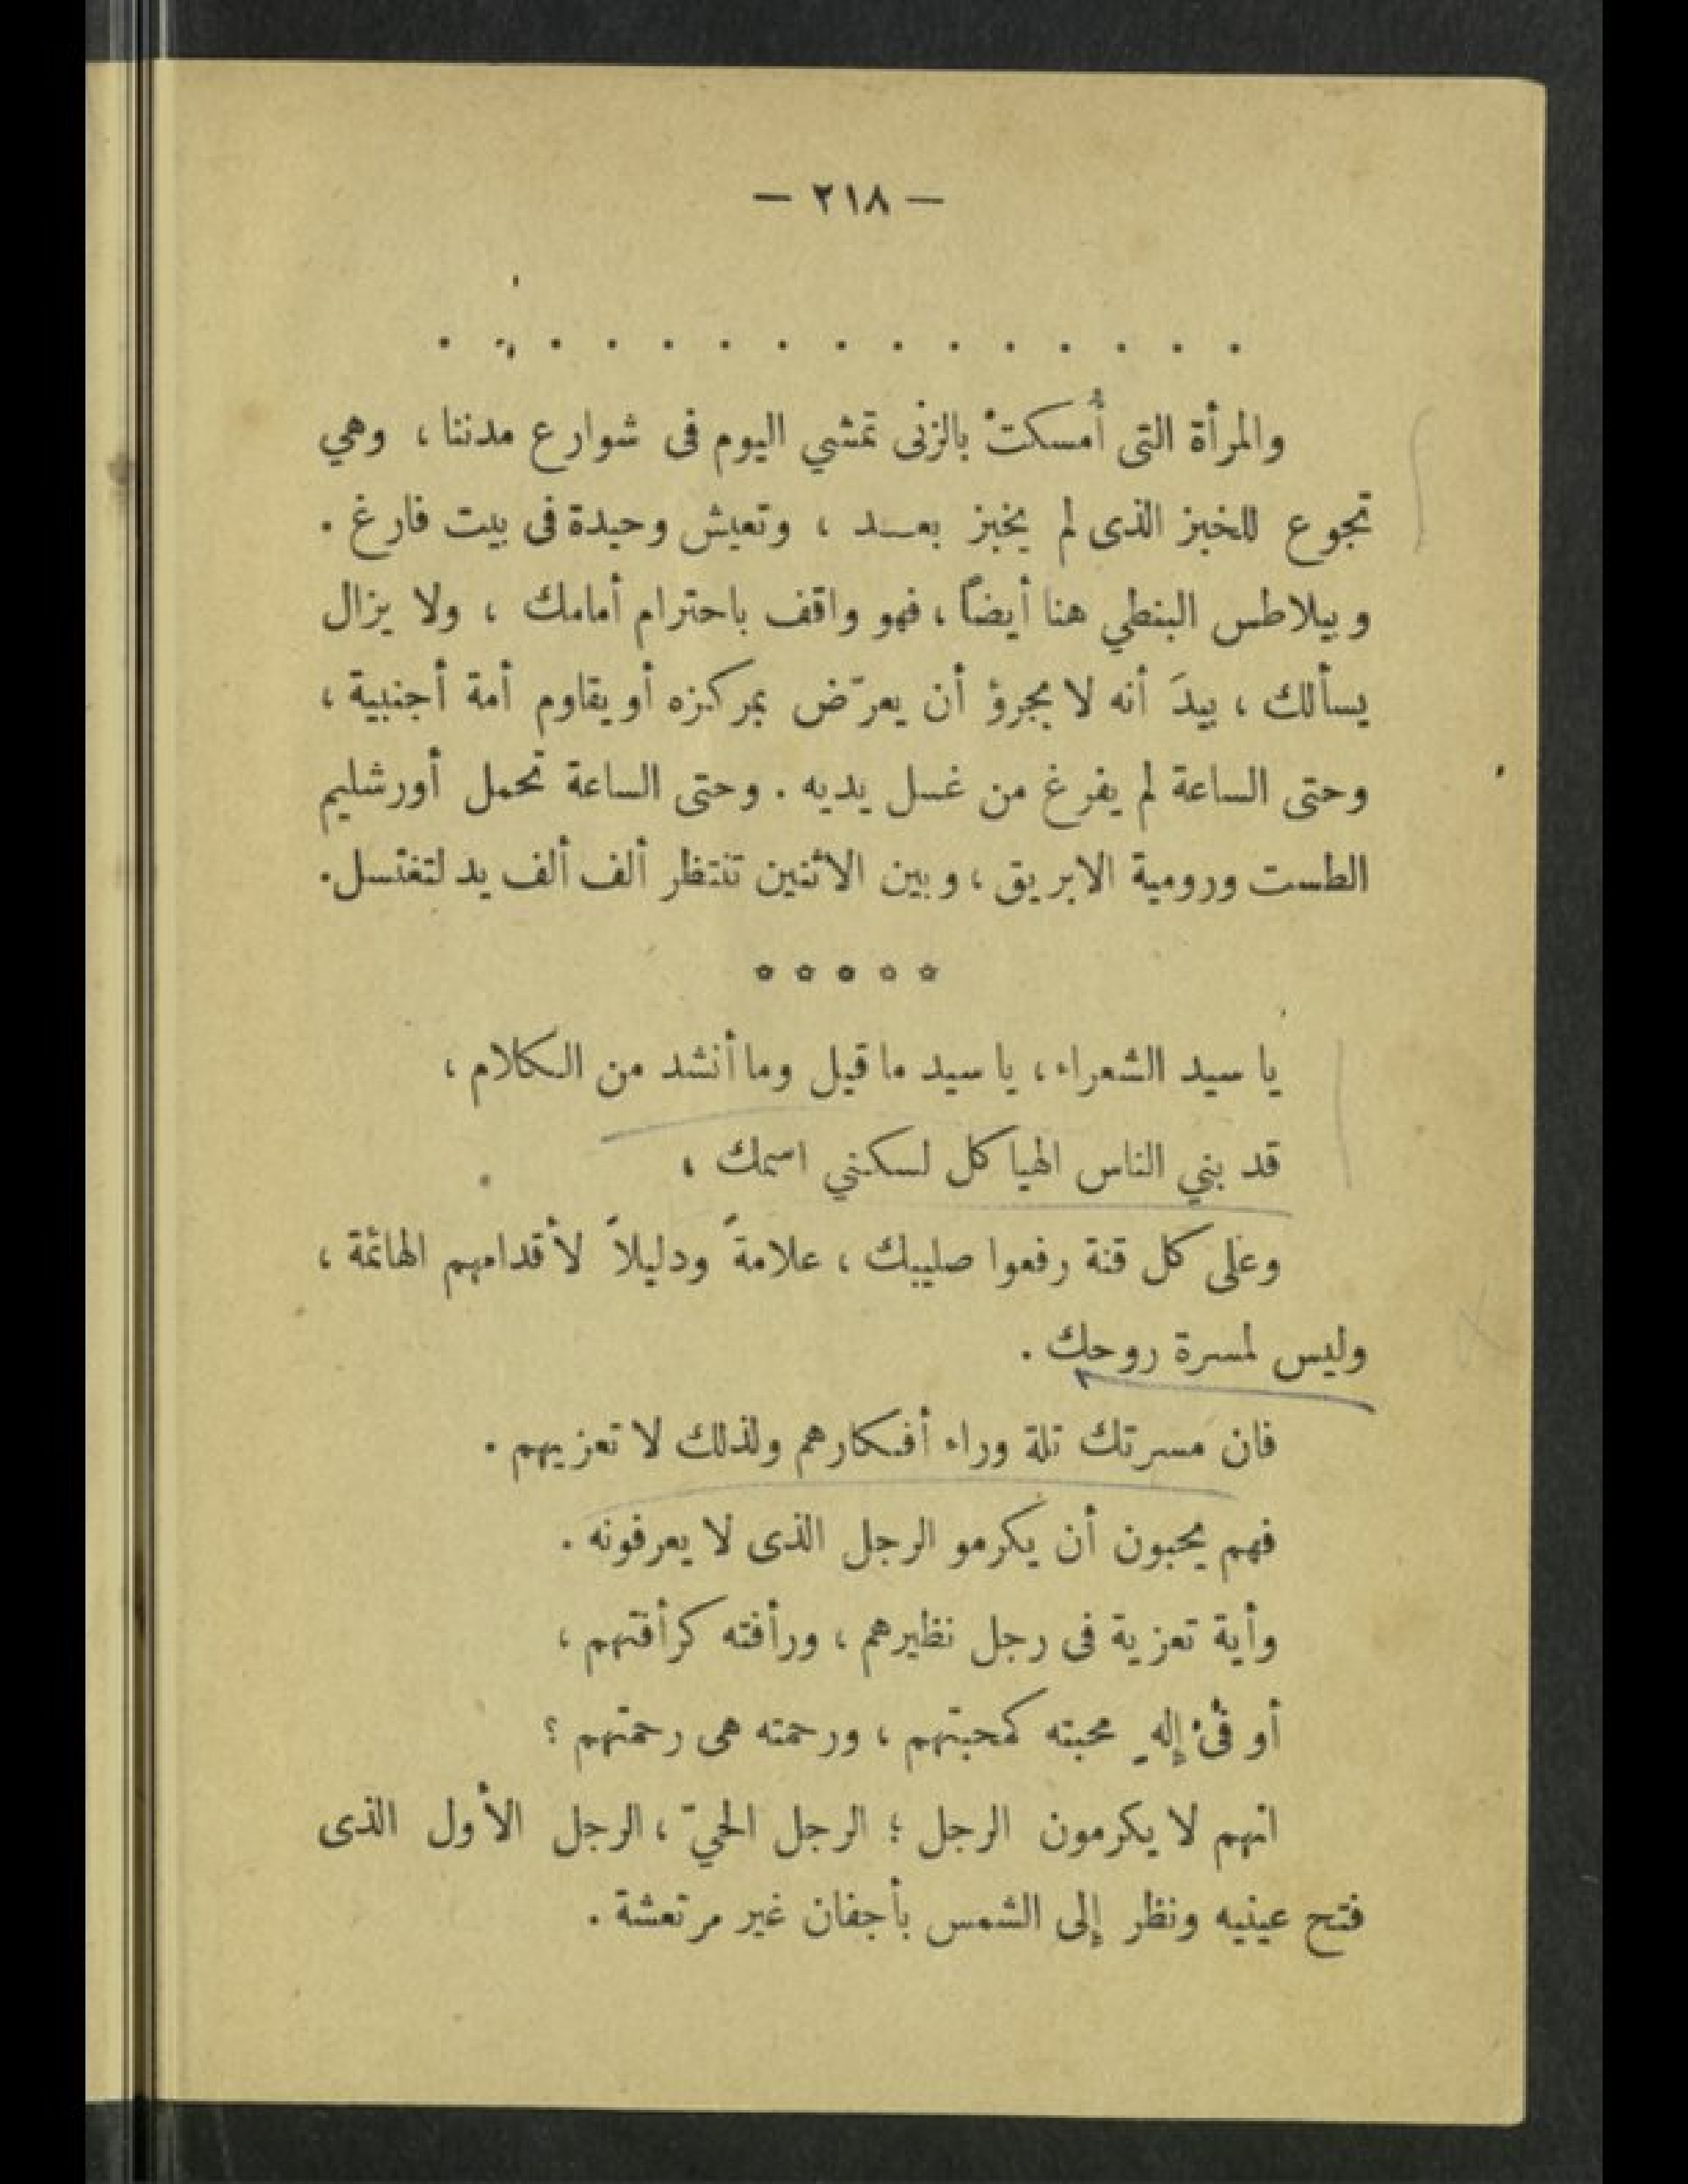 — ٢١٨ —
. . . . . . . . . . . . . . .
والمرأة التى أُمسكتْ بالزنى تمشي اليوم فى شوارع مدننا ، وهي
تجوع للخبز الذى لم يخبز بعـــد ، وتعيش وحيدة فى بيت فارغ .
وبيلاطس البنطي هنا أيضاً ، فهو واقف باحترام أمامك ، ولا يزال
يسألك ، بيدَ أنه لا يجرؤ أن يعرّض بمركزه أو يقاوم أمة أجنبية ،
وحتى الساعة لم يفرغ من غسل يديه . وحتى الساعة تحمل أورشليم
الطست ورومية الابريق ، وبين الاثنين تنتظر ألف ألف يد لتغتسل.
* * * * *
يا سيد الشعراء ، يا سيد ما قيل وما أنشد من الكلام ،
قد بني الناس الهياكل لسكني اسمك ،
وعلى كل قنة رفعوا صليبك ، علامةً ودليلاً لأقدامهم الهائمة ،
وليس لمسرة روحك .
فان مسرتك تلة وراء أفكارهم ولذلك لا تعزيهم .
فهم يحبون أن يكرمو الرجل الذى لا يعرفونه .
وأية تعزية فى رجل نظيرهم ، ورأفته كرأفتهم ،
أو فىْ إلهٍ محبته كمحبتهم ، ورحمته هى رحمتهم ؟
انهم لا يكرمون الرجل ؛ الرجل الحيّ ، الرجل الأول الذى
فتح عينيه ونظر إلى الشمس بأجفان غير مرتعشة .